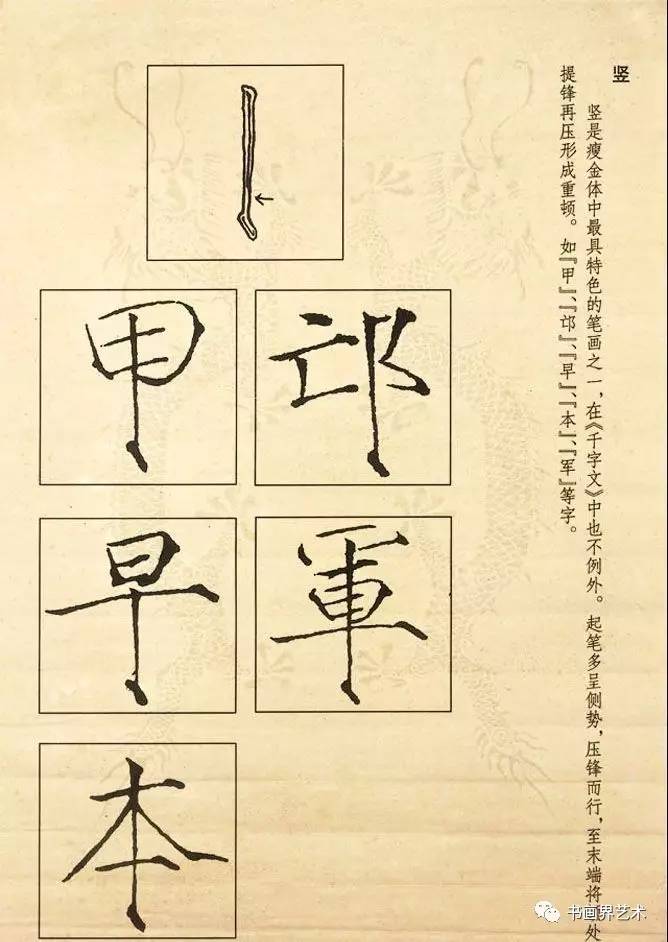 竖
竖是瘦金体中最具特色的笔画之一，在《千字文》中也不例外。起笔多呈侧势，压锋而行，至末端将处
提锋再压形成重顿。如『甲』、『邙』、『早』、『本』、『军』等字。
甲 邙
早 軍
本
书画界艺术